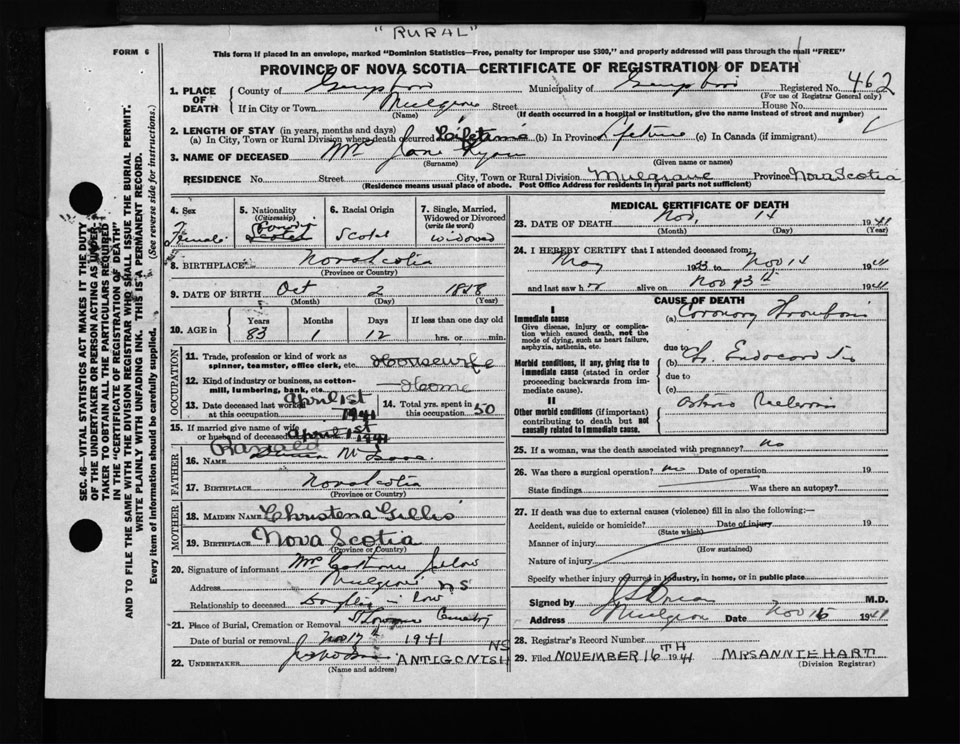 "RURAL"
FORM 6
This form if placed in an envelope, marked "Dominion Statistics—Free, penalty for improper use $300," and properly addressed will pass through the mail "FREE"
PROVINCE OF NOVA SCOTIA—CERTIFICATE OF REGISTRATION OF DEATH
1. PLACE OF DEATH
County of Municipality of Registered No. 462
(For use of Registrar General only)
If in City or Town Mulgrave Street House No.
(Name) (If death occurred in a hospital or institution, give the name instead of street and number)
2. LENGTH OF STAY (in years, months and days)
(a) In City, Town or Rural Division where death occurred Lifetime (b) In Province Lifetime (c) In Canada (if immigrant)
3. NAME OF DECEASED Mrs Jane Ryan
(Surname) (Given name or names)
RESIDENCE No. Street City, Town or Rural Division Mulgrave Province Nova Scotia
(Residence means usual place of abode. Post Office Address for residents in rural parts not sufficient)
4. Sex Female
5. Nationality (Citizenship)
6. Racial Origin Scotch
7. Single, Married, Widowed or Divorced (write the word) widowed
8. BIRTHPLACE Nova Scotia
(Province or Country)
9. DATE OF BIRTH Oct 2 1858
(Month) (Day) (Year)
10. AGE in Years Months Days If less than one day old
83 1 12 hrs. or min.
OCCUPATION
11. Trade, profession or kind of work as spinner, teamster, office clerk, etc. Housewife
12. Kind of industry or business, as cotton-mill, lumbering, bank, etc. Home
13. Date deceased last worked at this occupation April 1st 1941
14. Total yrs. spent in this occupation 50
15. If married give name of wife or husband of deceased April 1st 1941
FATHER
16. NAME Ranald
17. BIRTHPLACE Nova Scotia
(Province or Country)
MOTHER
18. MAIDEN NAME Christena Gillis
19. BIRTHPLACE Nova Scotia
(Province or Country)
20. Signature of informant Mrs
Address Mulgrave NS
Relationship to deceased Daughter in law
21. Place of Burial, Cremation or Removal Cemetery
Date of burial or removal Nov 17th 1941
22. UNDERTAKER ANTIGONISH NS
(Name and address)
MEDICAL CERTIFICATE OF DEATH
23. DATE OF DEATH Nov, 14 1941
(Month) (Day) (Year)
24. I HEREBY CERTIFY that I attended deceased from:
May 19 to Nov 14 1941
and last saw h alive on Nov 13th 1941
CAUSE OF DEATH
I
Immediate cause
Give disease, injury or complication which caused death, not the mode of dying, such as heart failure, asphyxia, asthenia, etc.
(a) Coronary Thrombosis
due to
Morbid conditions, if any, giving rise to immediate cause (stated in order proceeding backwards from immediate cause).
(b) Endocarditis
due to
(c)
II
Other morbid conditions (if important) contributing to death but not causally related to immediate cause.
25. If a woman, was the death associated with pregnancy? No
26. Was there a surgical operation? no Date of operation 19
State findings Was there an autopsy?
27. If death was due to external causes (violence) fill in also the following:—
Accident, suicide or homicide? Date of injury 19
(State which)
Manner of injury
(How sustained)
Nature of injury
Specify whether injury occurred in industry, in home, or in public place
Signed by M.D.
Address Mulgrave Date Nov 16 1941
28. Registrar's Record Number
29. Filed NOVEMBER 16TH 1941 MRS ANNIE HART
(Division Registrar)
SEC. 46—VITAL STATISTICS ACT MAKES IT THE DUTY
OF THE UNDERTAKER OR PERSON ACTING AS UNDERTAKER TO OBTAIN ALL THE PARTICULARS REQUIRED
IN THE "CERTIFICATE OF REGISTRATION OF DEATH"
AND TO FILE THE SAME WITH THE DIVISION REGISTRAR WHO SHALL ISSUE THE BURIAL PERMIT.
WRITE PLAINLY WITH UNFADING INK. THIS IS A PERMANENT RECORD.
Every item of information should be carefully supplied. (See reverse side for instructions.)